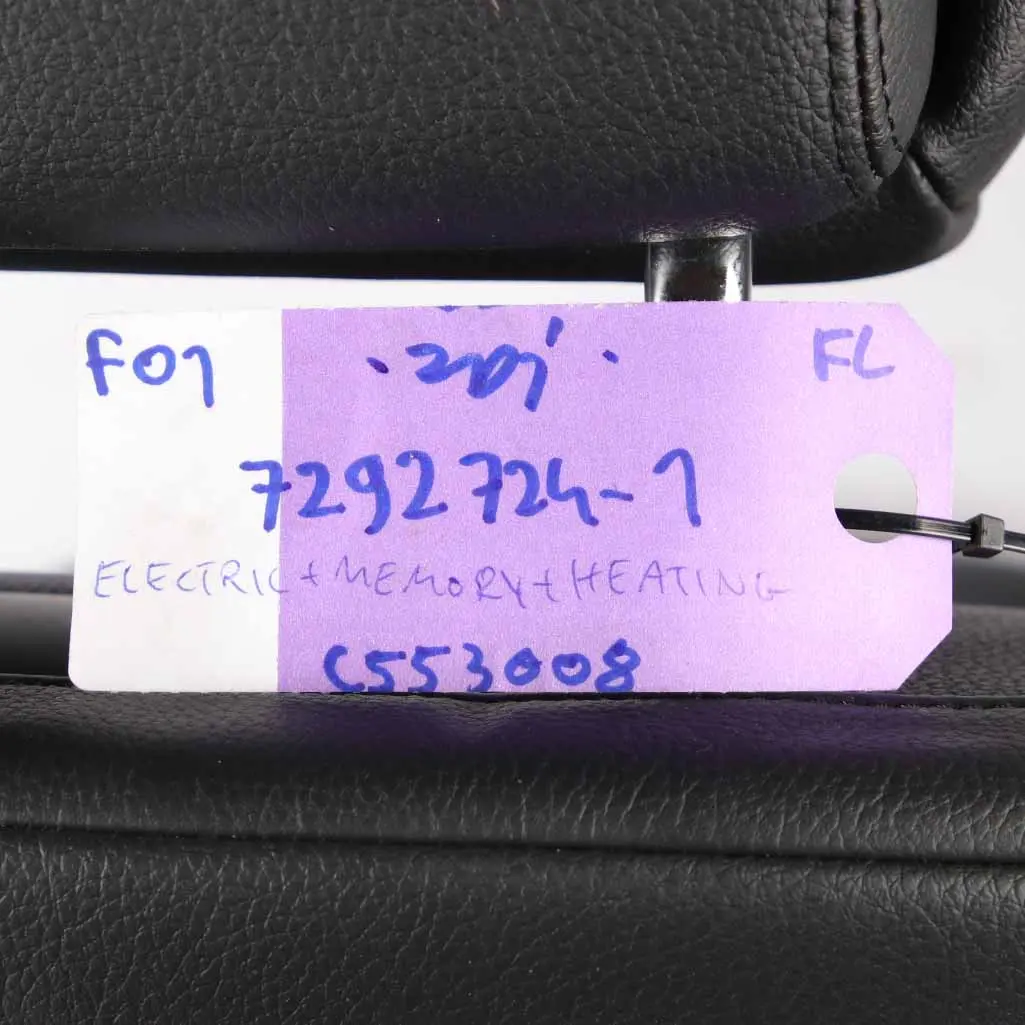 F01 FL
7292724-1
ELECTRIC + MEMORY + HEATING
C553008